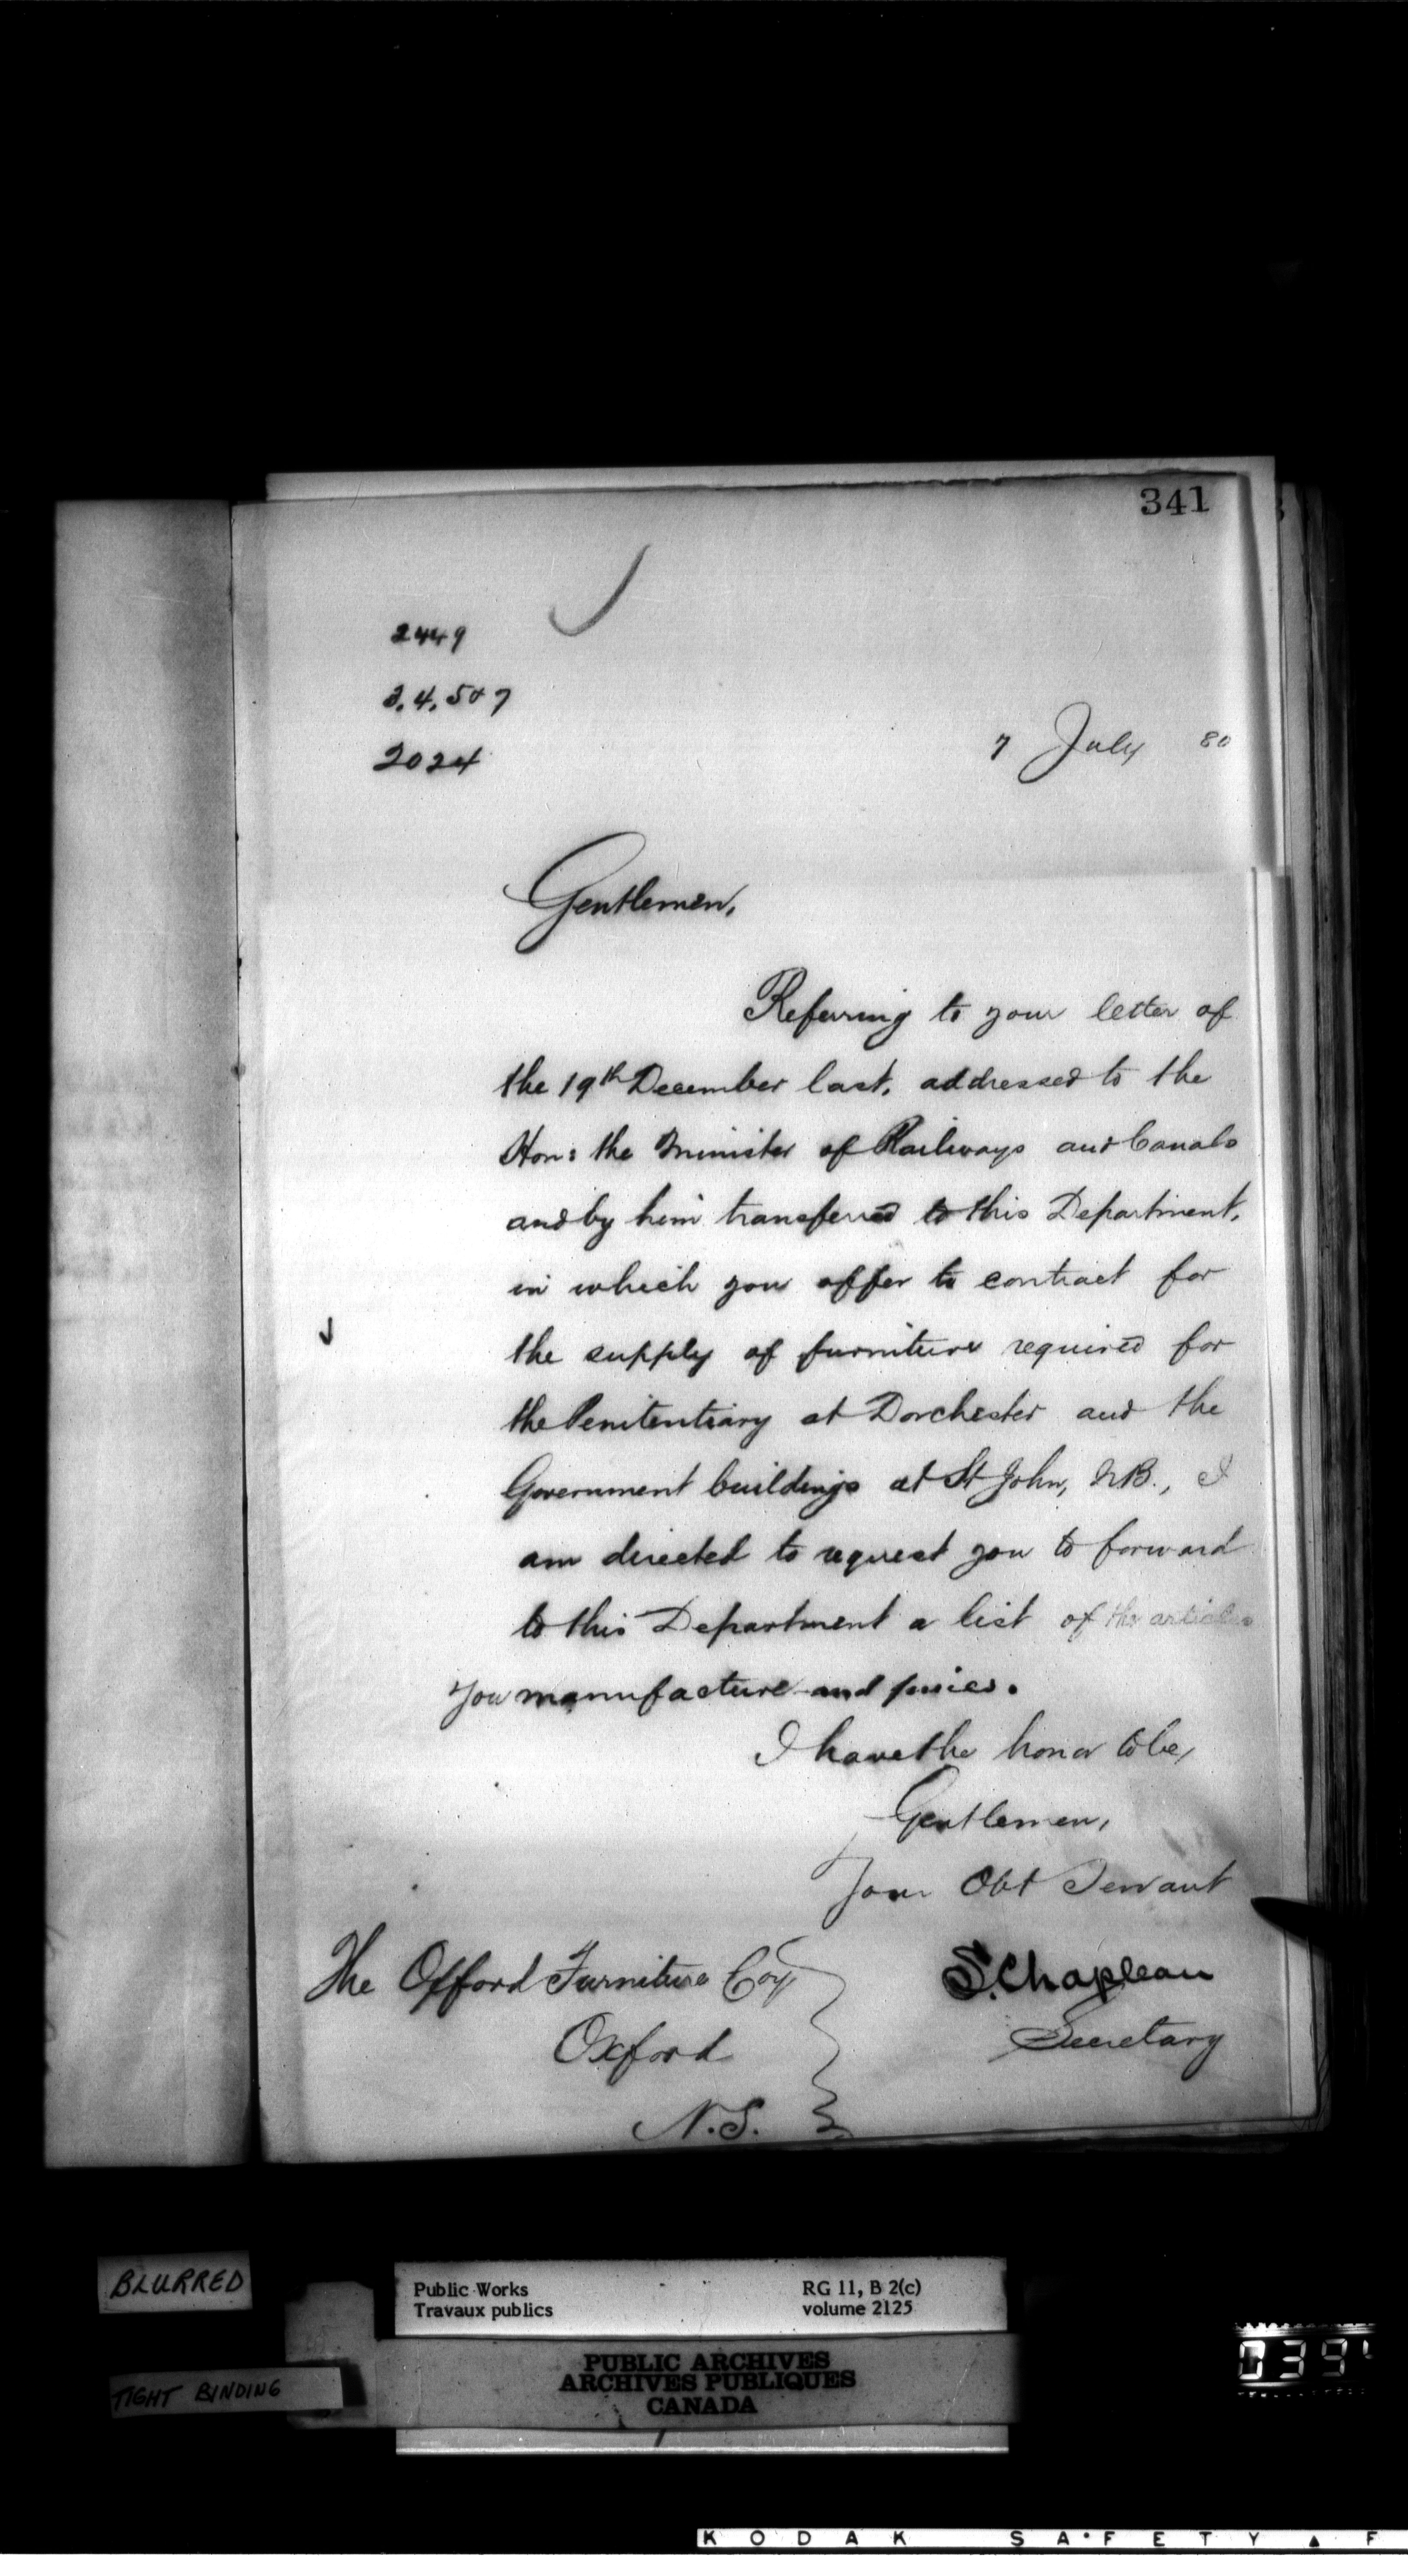 341
2449
3.4.5 & 7
2024
7 July 80
Gentlemen,
Referring to your letter of
the 19th December last, addressed to the
Hon: the Minister of Railways and Canals
and by him transferred to this Department,
in which you offer to contract for
the supply of furniture required for
the Penitentiary at Dorchester and the
Government buildings at St John, N.B., I
am directed to request you to forward
to this Department a list of the articles
you manufacture and prices.
I have the honor to be,
Gentlemen,
Your Obt Servant
S. Chapleau
Secretary
The Oxford Furniture Coy
Oxford
N.S.
BLURRED
TIGHT BINDING
Public Works
Travaux publics
RG 11, B 2(c)
volume 2125
PUBLIC ARCHIVES
ARCHIVES PUBLIQUES
CANADA
039
KODAK SAFETY F